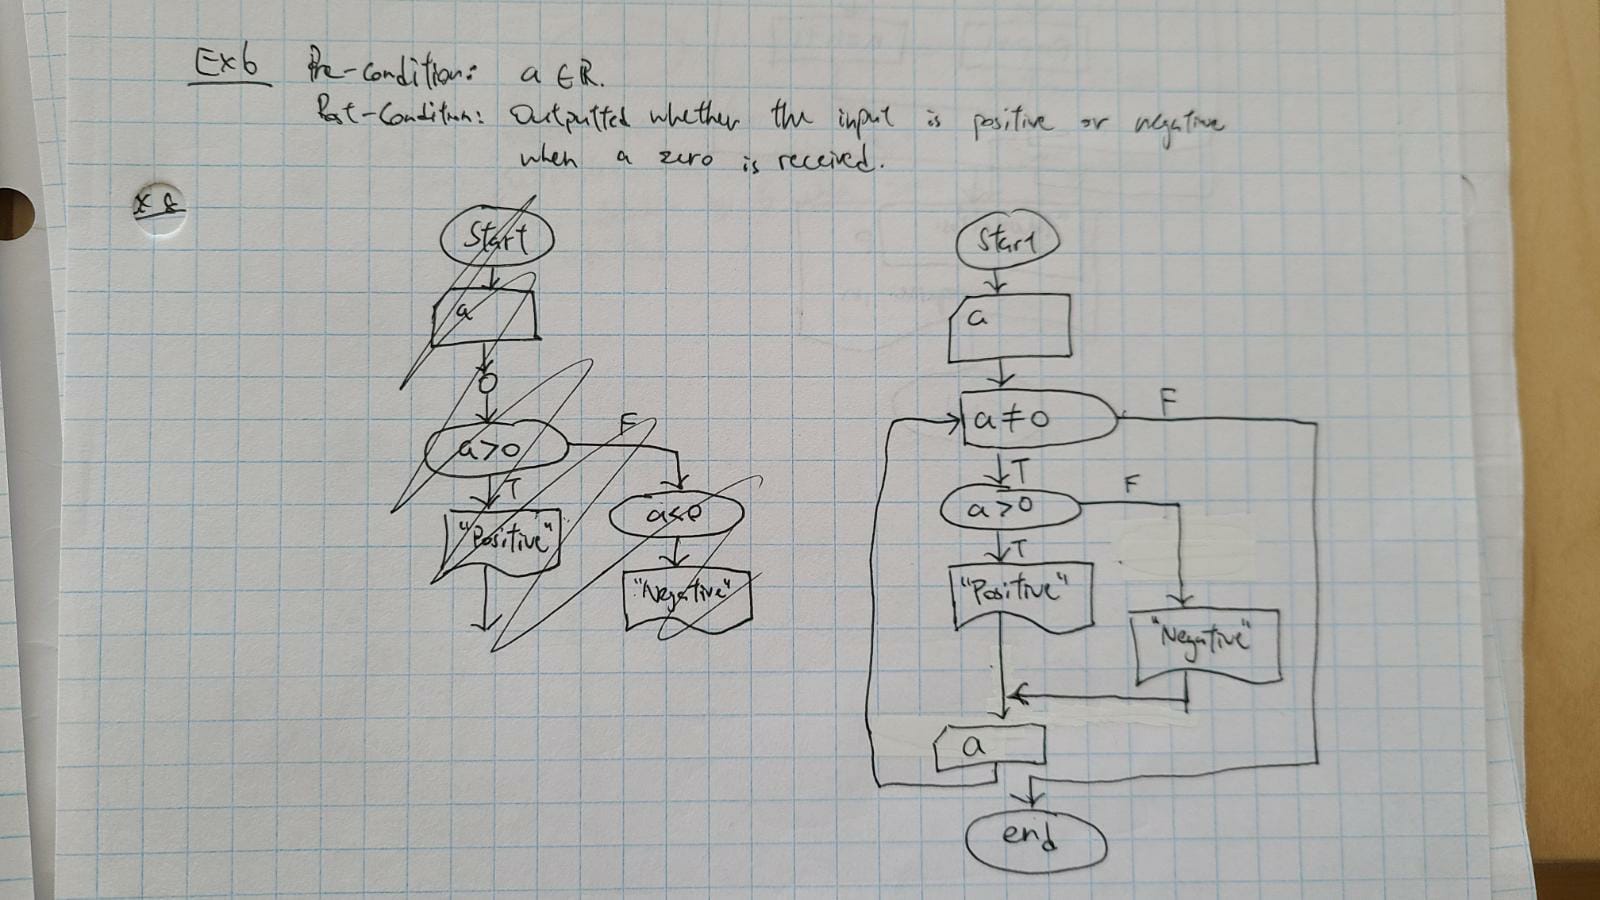 Ex6 Pre-Condition: a ∈ ℝ.
Post-Condition: Outputted whether the input is positive or negative
when a zero is received.
Start
a
a>0
F
T
"Positive"
a<0
"Negative"
Start
a
a≠0
F
T
a>0
F
T
"Positive"
"Negative"
a
end